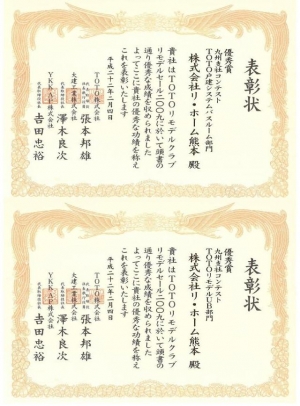 表彰状
優秀賞
九州支社コンテスト
TOTO戸建システムバスルーム部門
株式会社リ・ホーム熊本 殿
貴社はTOTOリモデルクラブ
リモデルセール二〇〇九に於いて頭書の
通り優秀な成績を収められました
よってここに貴社の優秀な功績を称え
これを表彰いたします
平成二十二年二月四日
TOTO株式会社
張本邦雄
大建工業株式会社
澤木良次
YKK AP株式会社
吉田忠裕
表彰状
優秀賞
九州支社コンテスト
TOTOリモデルUB部門
株式会社リ・ホーム熊本 殿
貴社はTOTOリモデルクラブ
リモデルセール二〇〇九に於いて頭書の
通り優秀な成績を収められました
よってここに貴社の優秀な功績を称え
これを表彰いたします
平成二十二年二月四日
TOTO株式会社
張本邦雄
大建工業株式会社
澤木良次
YKK AP株式会社
吉田忠裕